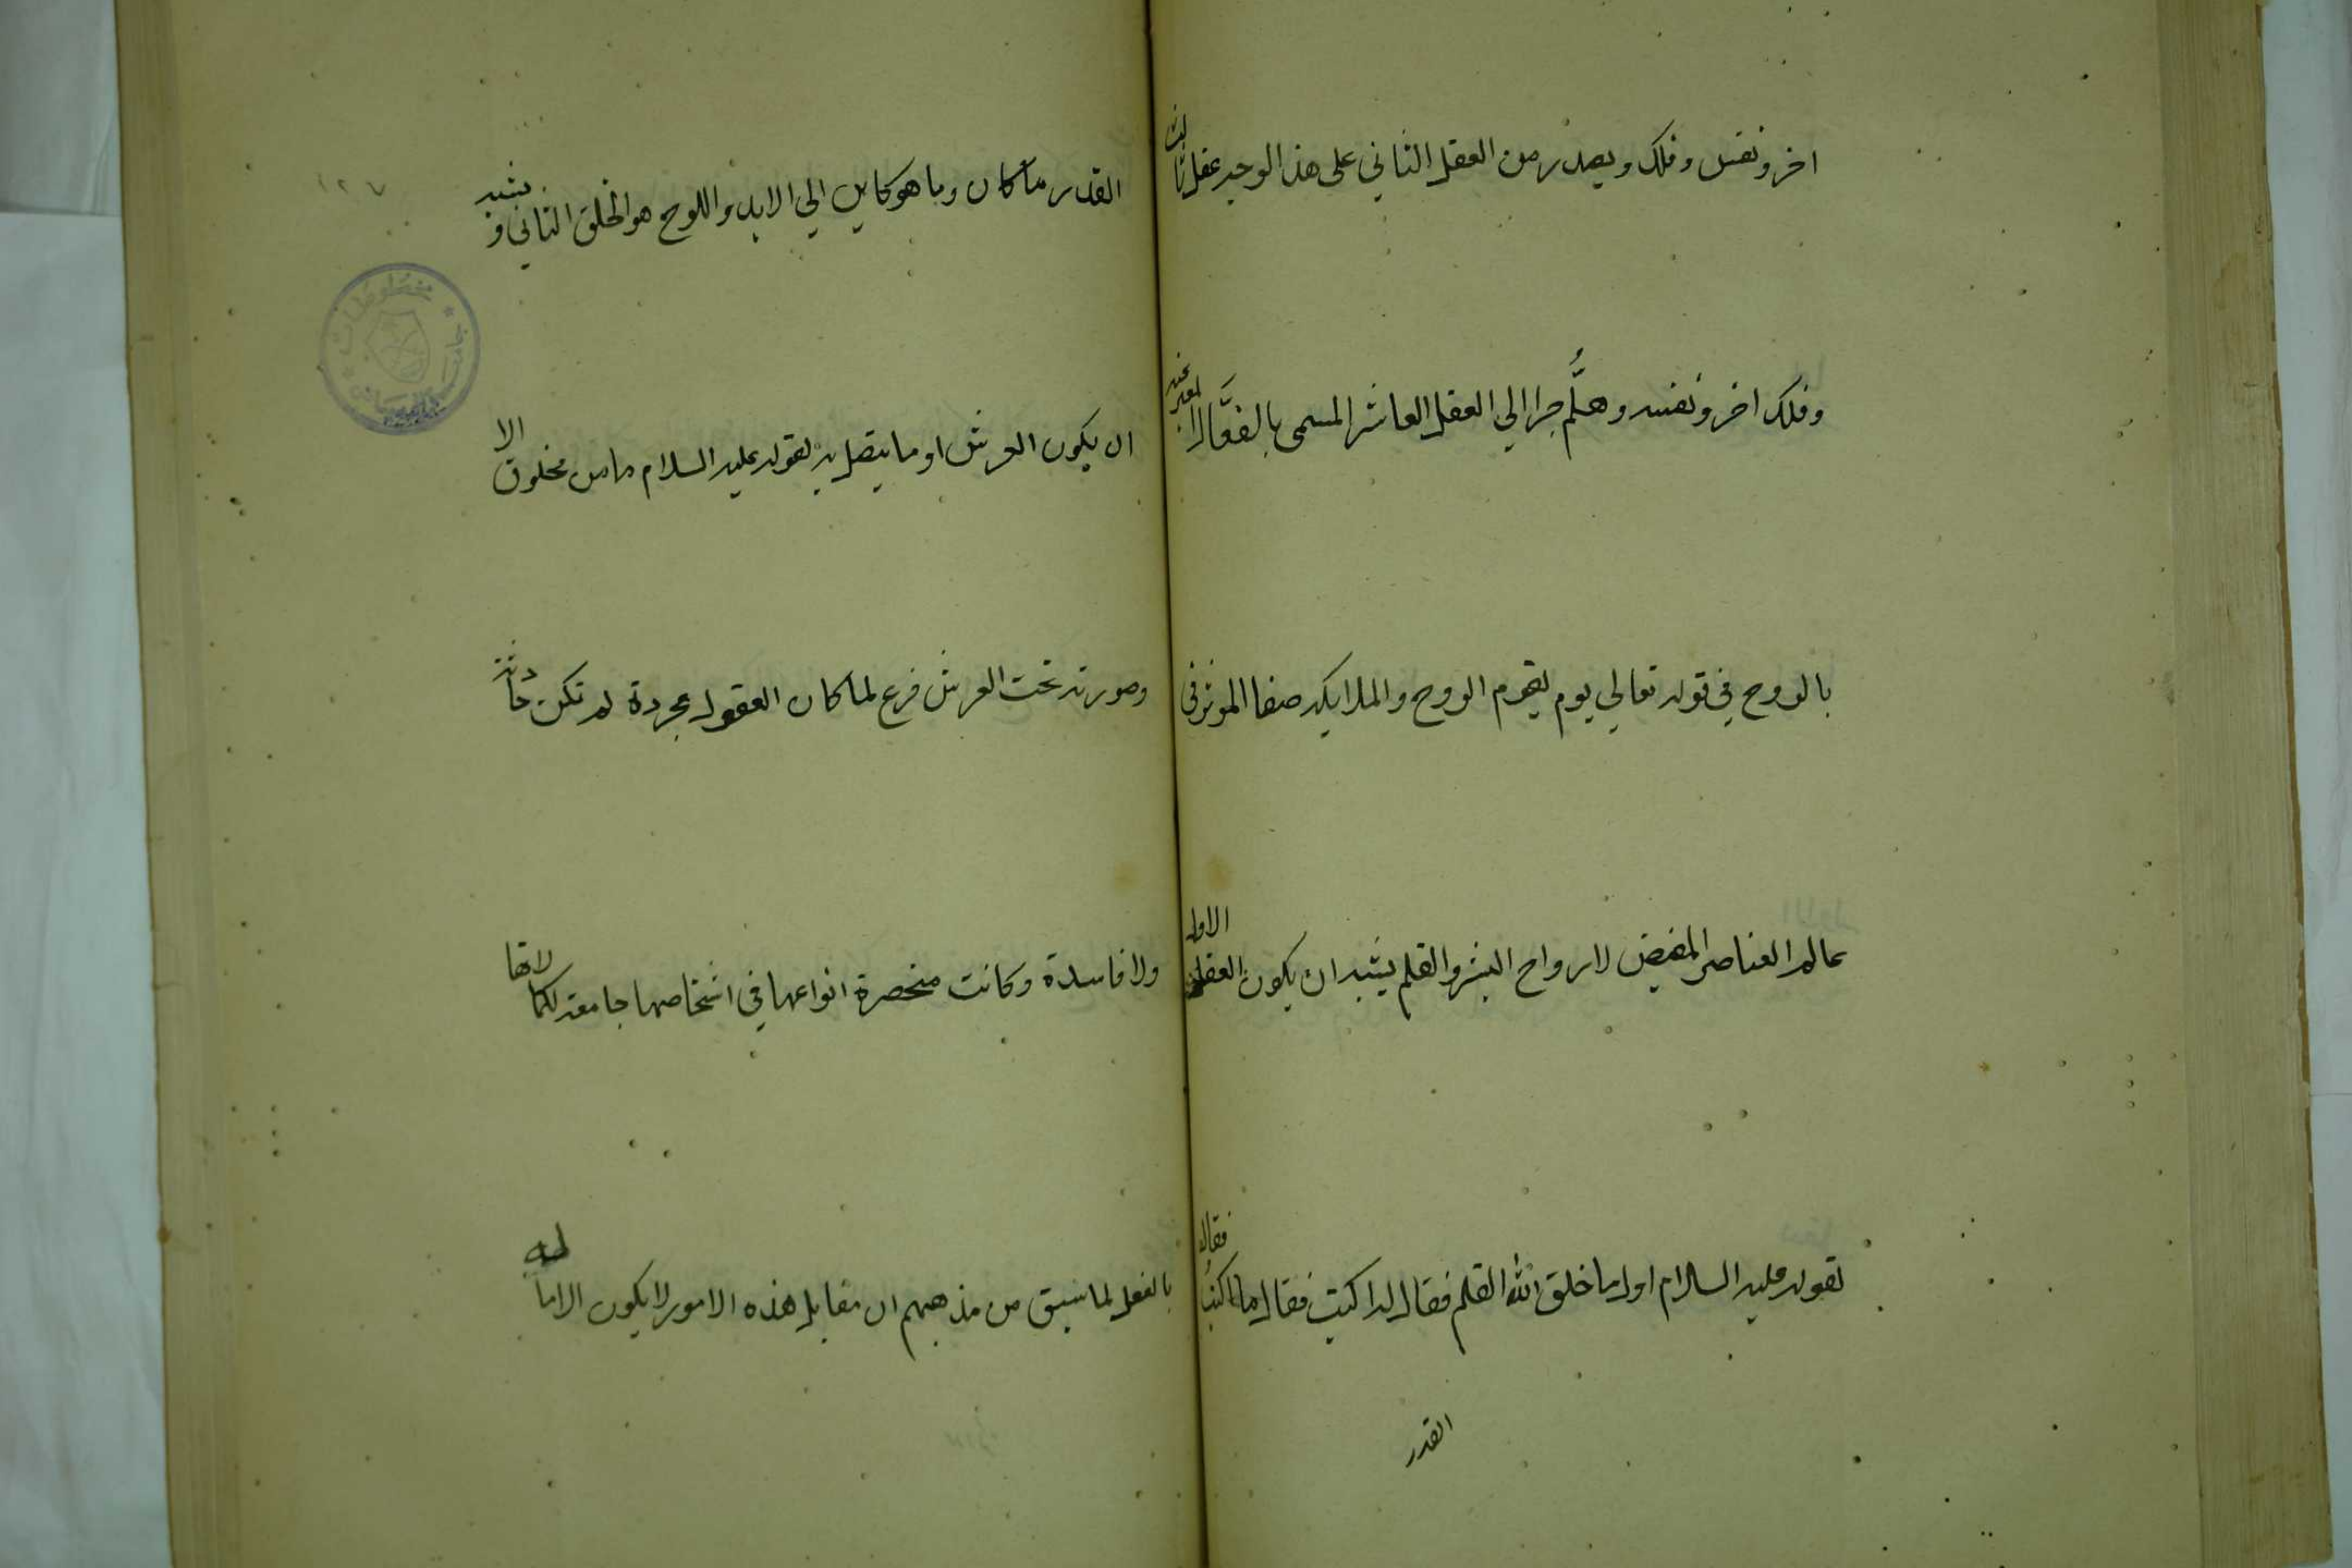 اخر ونفس وفلك ويصدر من العقل الثاني على هذا الوجه عقل ثالث
وفلك اخر ونفسه وهلُمَّ جرا الي العقل العاشر المسمى بالفعَّال المعبر عنه
بالروح في قوله تعالي يوم يقوم الروح والملايكه صفا المؤثر في
عالم العناصر المفيض لارواح البشر والقلم يشبه ان يكون العقل الاول
لقوله عليه السلام اول ما خلق الله القلم فقال له اكتب فقال ما اكتب فقال
القدر
١٢٧
القدر ما كان وما هو كاين الي الابد واللوح هو الخلق الثاني ويشبه
ان يكون العرش او ما يتصل به لقوله عليه السلام ما من مخلوق الا
وصورته تحت العرش فرع لما كان العقول مجردة لم تكن حادثة
ولا فاسدة وكانت منحصرة انواعها في اشخاصها جامعة لكمالاتها
بالفعل لما سبق من مذهبهم ان مقابل هذه الامور لا يكون الا لما له
مخطوطات
جامعة